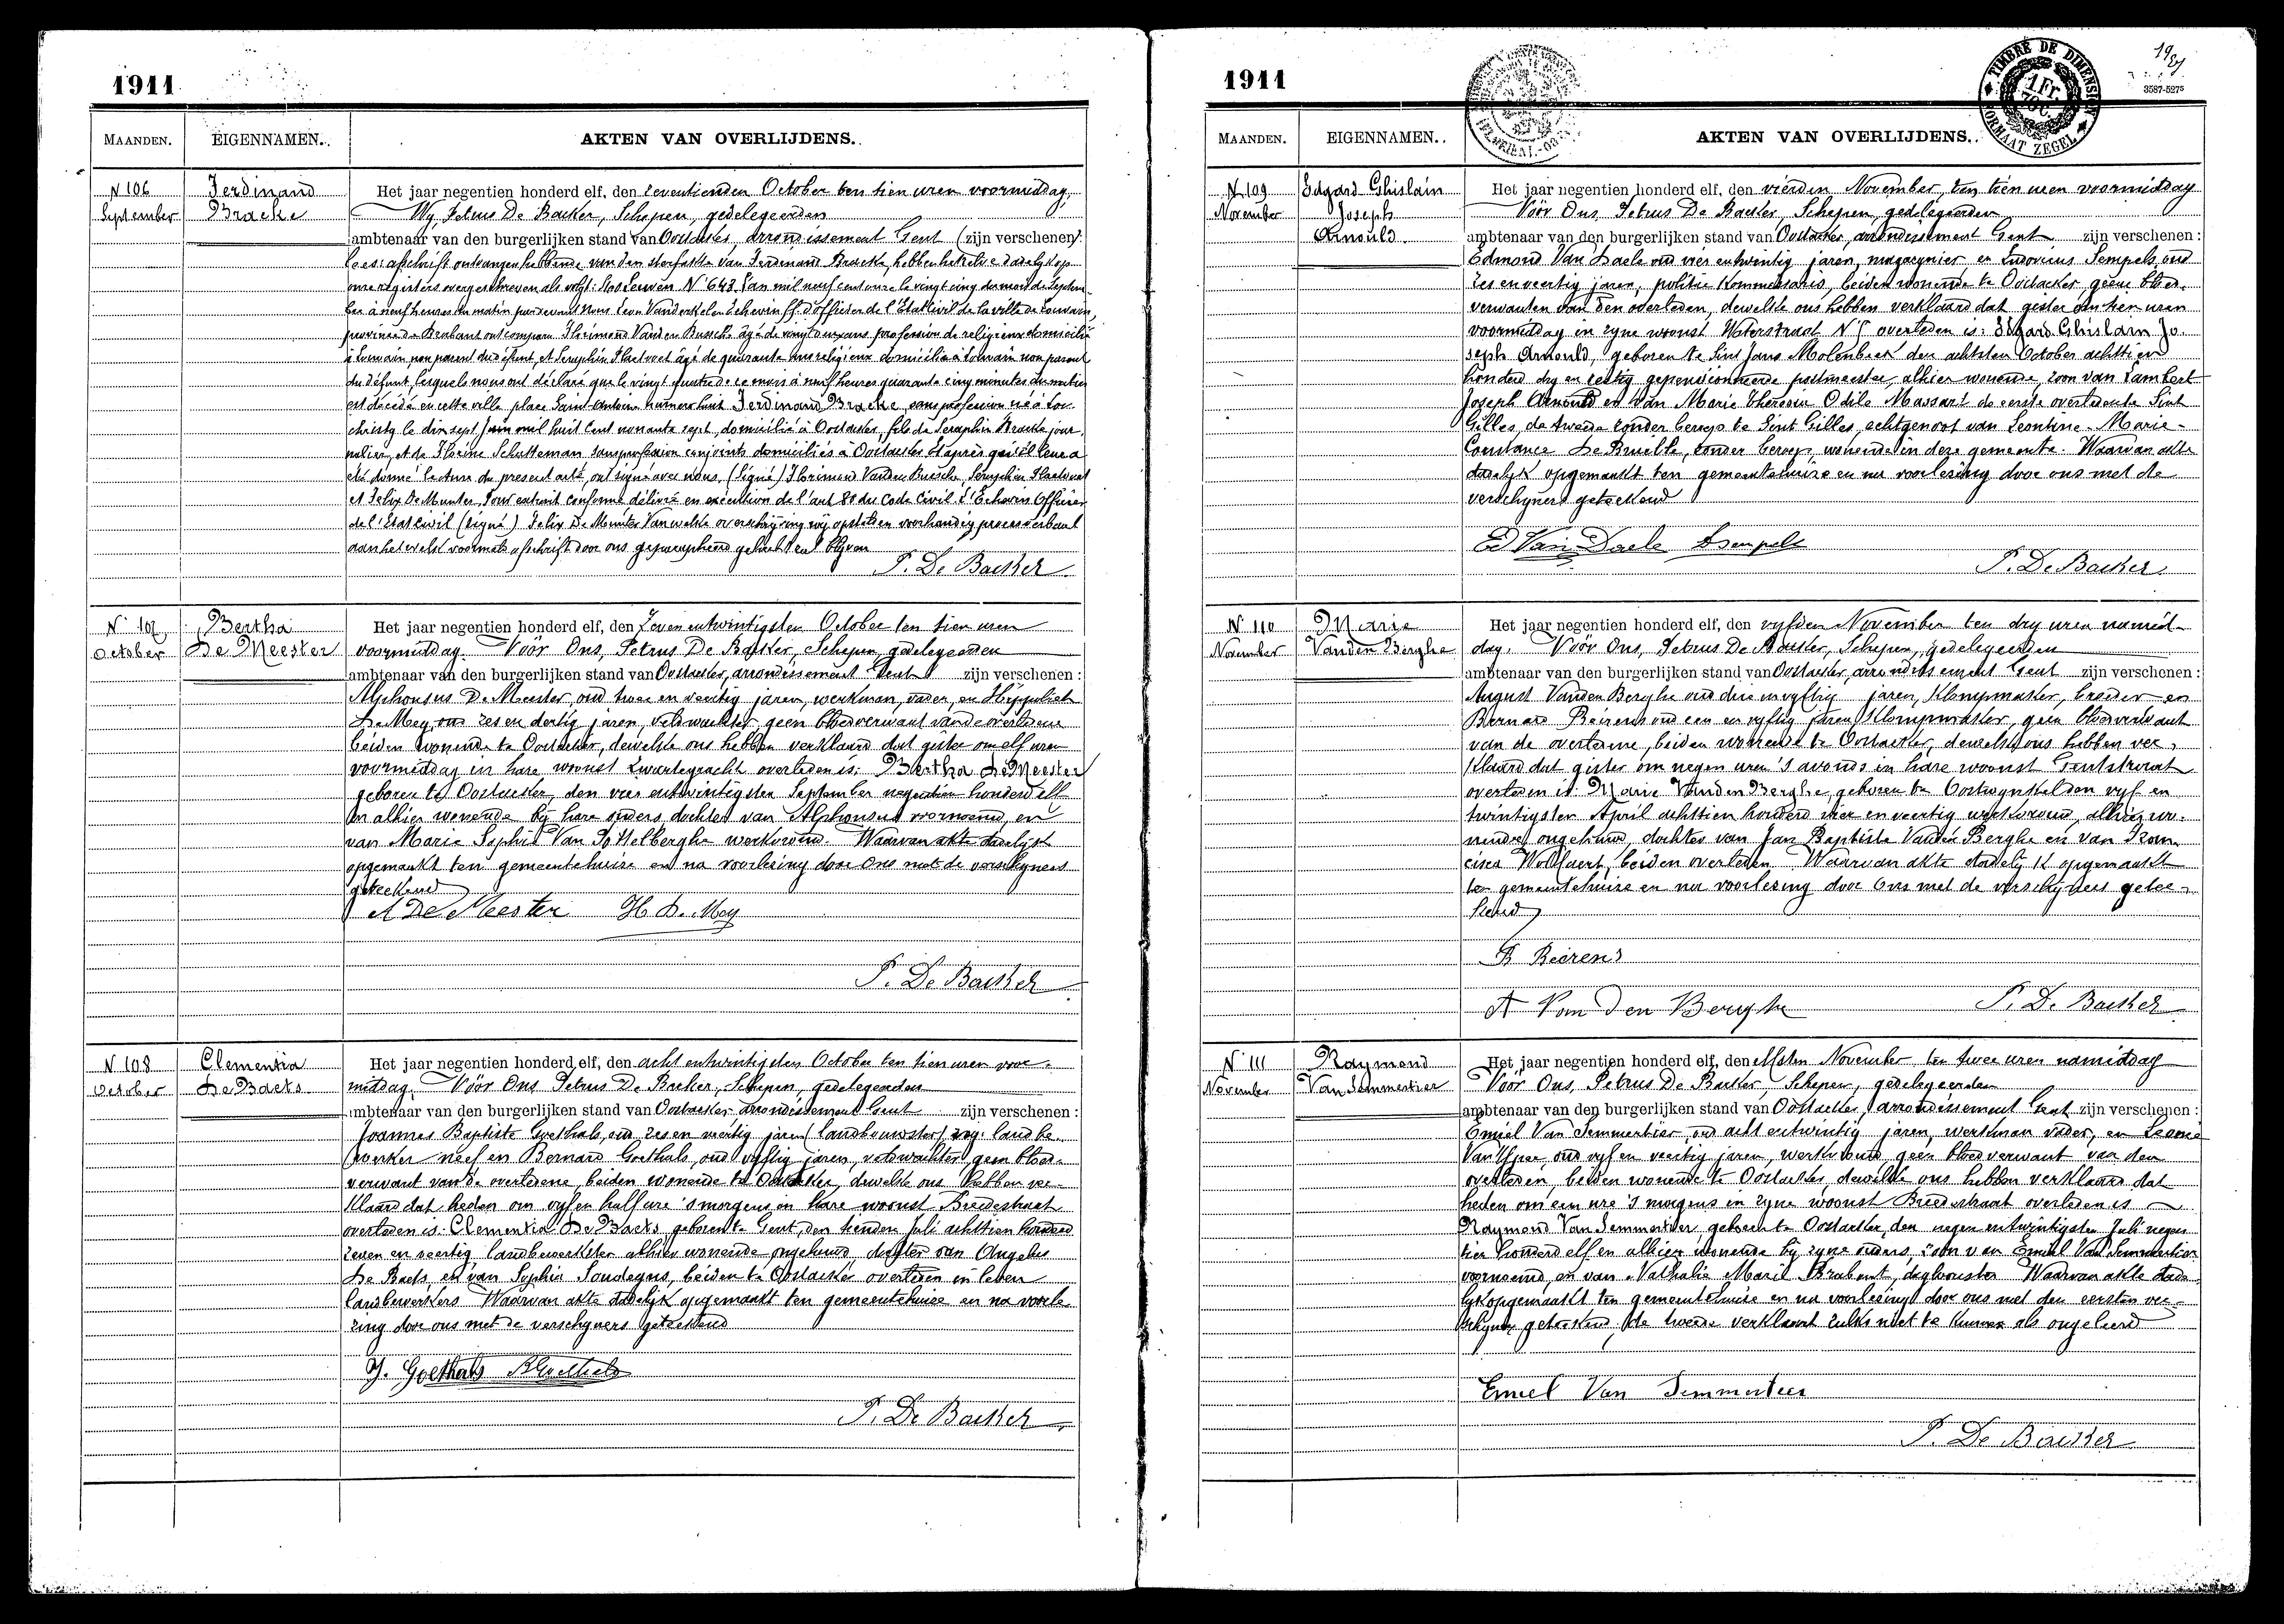 1911
MAANDEN. EIGENNAMEN. AKTEN VAN OVERLIJDENS.
N 106 September
Ferdinand Bracke
Het jaar negentien honderd elf, den zeventienden October ten tien uren voormiddag,
Wij Petrus De Backer, Schepen, gedelegeerden
ambtenaar van den burgerlijken stand van Oostacker, arrondissement Gent (zijn verschenen):
lees: afschrift ontvangen hebbende van den sterfakte van Ferdinand Bracke, hebben hetzelve dadelijk op
onze registers overgeschreven als volgt: Hos Leuven N° 643 L'an mil neuf cent onze le vingt cinq du mois de Septem-
bre à neuf heures du matin par devant Nous Leon Vanderkelen Echevin ff. d'officier de l'Etat Civil de la ville de Louvain,
province de Brabant ont comparu Florimond Vanden Bussche âgé de vingt deux ans profession de religieux domicilié
à Louvain, non parent du défunt, et Seraphin Haetvoet âgé de quarante ans religieux domicilié à Louvain non parent
du défunt, lesquels nous ont déclaré que le vingt quatre de ce mois à neuf heures quarante cinq minutes du matin
est décédé en cette ville place Saint-Antoine numero huit Ferdinand Bracke, sans profession né à Loo-
christy le dix sept Juin mil huit cent nonante sept, domicilié à Oostacker, fils de Seraphin Bracke jour-
nalier, et de Florine Schutteman sans profession conjoints domiciliés à Oostacker. Et après qu'il leur a
été donné lecture du présent acte, ont signé avec nous, (signé) Florimond Vanden Bussche, Seraphin
et Felix De Munter, Pour extrait conforme délivré en exécution de l'art 80 du Code Civil L'Echevin Officier
de l'Etat Civil (signé) Felix De Munter Van welke overschrijving wij opstellen voorhandig processverbaal
aan hetwelk voormeld afschrift door ons geparapheerd gehecht zal blijven
P. De Backer
N° 107 October
Bertha De Meester
Het jaar negentien honderd elf, den Zeven entwintigsten October ten tien uren
voormiddag. Vóór Ons, Petrus De Backer, Schepen, gedelegeerden
ambtenaar van den burgerlijken stand van Oostacker, arrondissement Gent zijn verschenen:
Alphonsus De Meester, oud twee en veertig jaren, werkman, vader, en Hippoliet
De Mey, oud zes en dertig jaren, veldwachter, geen bloedverwant van de overledene
beiden wonende te Oostacker, dewelke ons hebben verklaard dat gister om elf uren
voormiddag in hare woonst Zwartegracht overleden is: Bertha De Meester
geboren te Oostacker, den vier entwintigsten September negentien honderd elf
en alhier wonende bij hare ouders dochter van Alphonsus voornoemd, en
van Marie Sophie Van Hollebergh werkvrouw. Waarvan akte dadelijk
opgemaakt ten gemeentehuize en na voorlezing door Ons met de verschijners
geteekend
A De Meester H D. Mey
P. De Backer
N 108 October
Clementia De Baets
Het jaar negentien honderd elf, den acht entwintigsten October ten tien uren voor-
middag. Vóór Ons Petrus De Backer, Schepen, gedelegeerden
ambtenaar van den burgerlijken stand van Oostacker arrondissement Gent zijn verschenen:
Joannes Baptiste Goethals, oud zes en veertig jaren (landbouwster) zeg: landbe-
werker neef en Bernard Goethals, oud vijftig jaren, veldwachter, geen bloed-
verwant van de overledene beiden wonende te Oostacker, dewelke ons hebben ver-
klaard dat heden om vijf en half ure 's morgens in hare woonst Breedestraat
overleden is: Clementia De Baets, geboren te Gent, den tienden Juli achttien honderd
zeven en veertig landbewerkster alhier wonende ongehuwd dochter van Angelus
De Baets, en van Sophie Soudeyns, beiden te Oostacker overleden in leven
landbewerkers Waarvan akte dadelijk opgemaakt ten gemeentehuize en na voorle-
zing door ons met de verschijners geteekend
J. Goethals B Goethals
P. De Backer
1911
TIMBRE DE DIMENSION FORMAAT ZEGEL
3587-5275
MAANDEN. EIGENNAMEN. AKTEN VAN OVERLIJDENS.
N 109 November
Edgard Ghislain Joseph Arnould
Het jaar negentien honderd elf, den vierden November, ten tien uren voormiddag
Vóór Ons, Petrus De Backer, Schepen, gedelegeerden
ambtenaar van den burgerlijken stand van Oostacker, arrondissement Gent zijn verschenen:
Edmond Van Daele oud vier entwintig jaren, magazynier en Ludovicus Sempels, oud
zes en veertig jaren, politie kommissaris, beiden wonende te Oostacker, geene bloed-
verwanten van den overleden, dewelke ons hebben verklaard dat gister om tien uren
voormiddag in zyne woonst Waterstraat N° overleden is: Edgard Ghislain Jo-
seph Arnould, geboren te Sint Jans Molenbeek den achtsten October achttien
honderd dry en zestig gepensionneerde postmeester, alhier wonende, zoon van Lambert
Joseph Arnould en van Marie Thérésia Odile Massart de eerste overleden te Sint
Gilles, de tweede zonder beroep te Sint Gilles, echtgenoot van Leontine Marie
Constance De Bruille, zonder beroep, wonende in deze gemeente. Waarvan akte
dadelijk opgemaakt ten gemeentehuize en na voorlezing door ons met de
verschijners geteekend
Ed Van Daele Sempels
P. De Backer
N° 110 November
Marie Vanden Berghe
Het jaar negentien honderd elf, den vyfden November ten dry uren namid-
dag. Vóór Ons, Petrus De Backer, Schepen, gedelegeerden
ambtenaar van den burgerlijken stand van Oostacker, arrondissement Gent zijn verschenen:
August Vanden Berghe oud drie en vyftig jaren, klompmaker, broeder en
Bernard Beirens oud een en vyftig jaren, klompmaker, geen bloedverwant
van de overledene, beiden wonende te Oostacker, dewelke ons hebben ver-
klaard dat gister om negen uren 's avonds in hare woonst Gentstraat
overleden is: Marie Vanden Berghe, geboren te Oostwynkel den vyf en
twintigsten April achttien honderd vier en veertig werkvrouw, alhier wo-
nende, ongehuwd, dochter van Jan Baptiste Vanden Berghe en van Fran-
cisca Wollaert, beiden overleden Waarvan akte dadelijk opgemaakt
ten gemeentehuize en na voorlezing door Ons met de verschijners getee-
kend
B Beirens
A Van den Berghe P. De Backer
N° 111 November
Raymond Van Semmertier
Het jaar negentien honderd elf, den elfden November ten twee uren namiddag
Vóór Ons, Petrus De Backer Schepen, gedelegeerden
ambtenaar van den burgerlijken stand van Oostacker, arrondissement Gent zijn verschenen:
Emiel Van Semmertier, oud acht entwintig jaren, werkman vader, en Leonie
oud vyf en veertig jaren, werkvrouw, geen bloedverwant van den
overleden, beiden wonende te Oostacker, dewelke ons hebben verklaard dat
heden om een ure 's morgens in zyne woonst Breedestraat overleden is
Raymond Van Semmertier geboren te Oostacker, den negen entwintigsten Juli negen
tien honderd elf en alhier wonende bij zyne ouders, zoon van Emiel Van Semmertier
voornoemd, en van Nathalie Marie Brabant, dagloonster Waarvan akte dade-
lyk opgemaakt ten gemeentehuize en na voorlezing door ons met den eersten ver-
schijner geteekend, de tweede verklaart zulks niet te kunnen als ongeleerd
Emiel Van Semmertier
P. De Backer